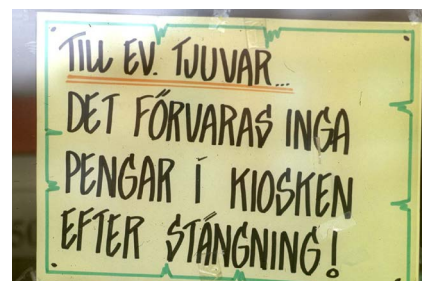 TILL EV. TJUVAR...
DET FÖRVARAS INGA
PENGAR I KIOSKEN
EFTER STÄNGNING!